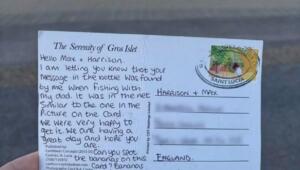 The Serenity of Gros Islet
Hello Max + Harrison.
I am letting you know that your
message in the bottle was found
by me when fishing with
my dad. It was in the net
similar to the one in the
Picture on the Card.
We were very happy to
get it. We are having a
great day and hope you
are.
Can you spot
the bananas on this
Card? Bananas
SAINT LUCIA
HARRISON + MAX
ENGLAND.